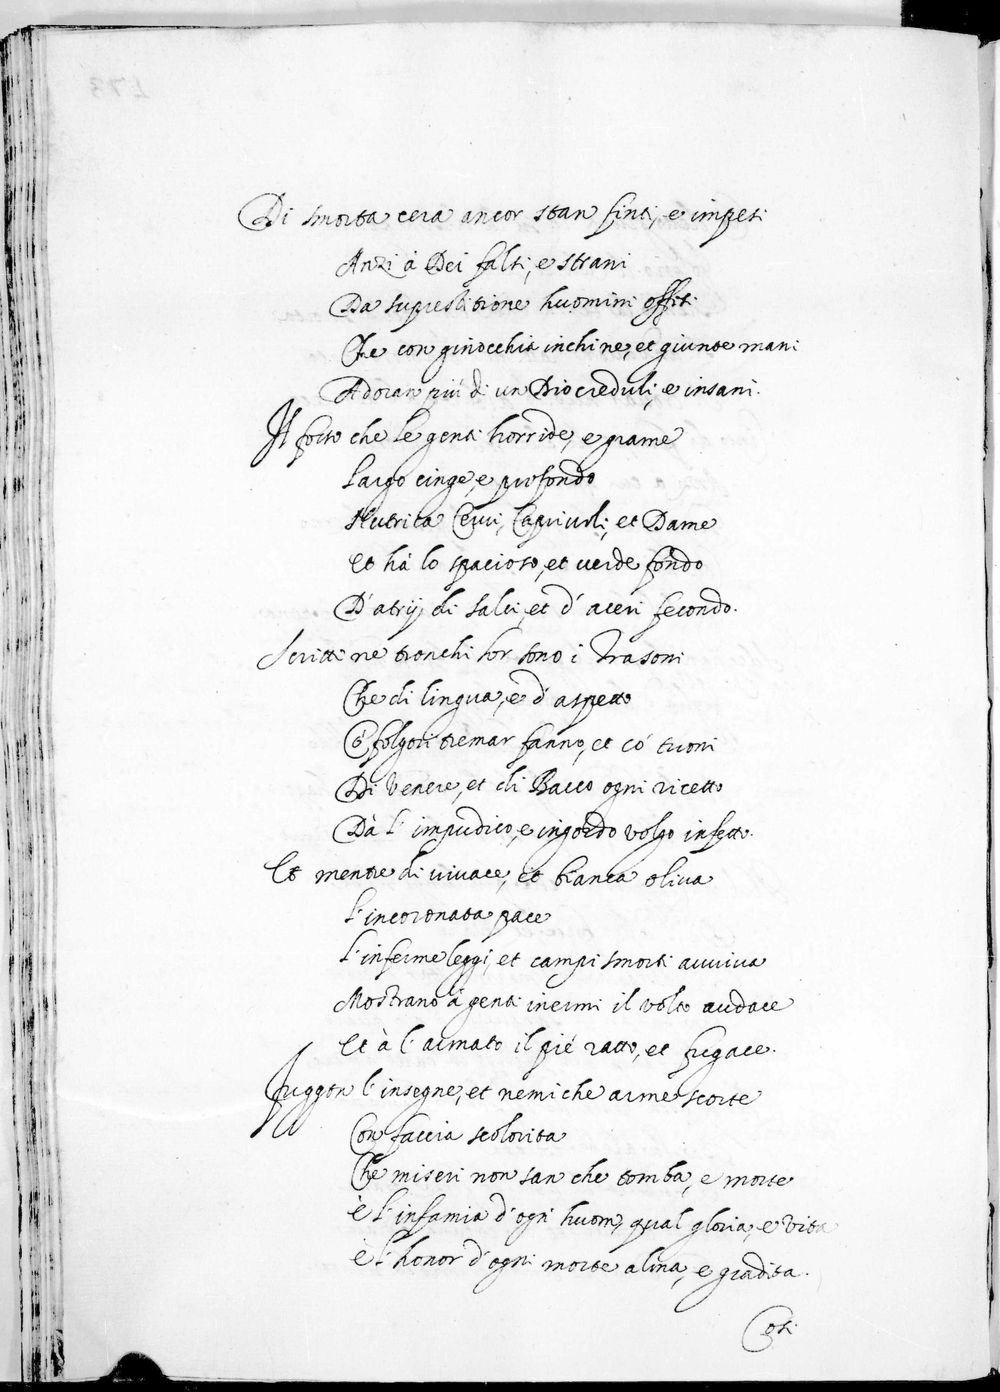 Di smorta cera ancor stan finti, e impesi
Anzi à Dei falsi, e strani
Da supreslitione huomini offesi
Che con ginocchia inchine, et giunte mani
Adoran più di un Dio creduli, e insani.
Il fosso che le genti horride, e grame
Largo cinge, e profondo
Nutrica Cerui, Capriuoli, et Dame
Et hà lo spacioso, et uerde fondo
D'atrij di salci, et d'aceri fecondo.
Scritti ne tronchi lor sono i Trasoni
Che di lingua, e d'aspetto
Cò folgori tremar fanno, et co' tuoni
Di Venere, et di Bacco ogni ricetto
Dà l'impudico, e ingordo volgo infetto.
Et mentre di viuace, et bianca oliua
L'incoronata pace
L'inferme leggi, et campi smorti auuiua
Mostrano à genti inermi il volto audace
Et à l'armato il piè ratto, et fugace.
Fuggon l'insegne, et nemiche arme scorte
Con faccia scolorita
Che miseri non san che tomba, e morte
È l'infamia d'ogni huom, qual gloria, e vita
È l'honor d'ogni morte alma, e gradita.
Cosi